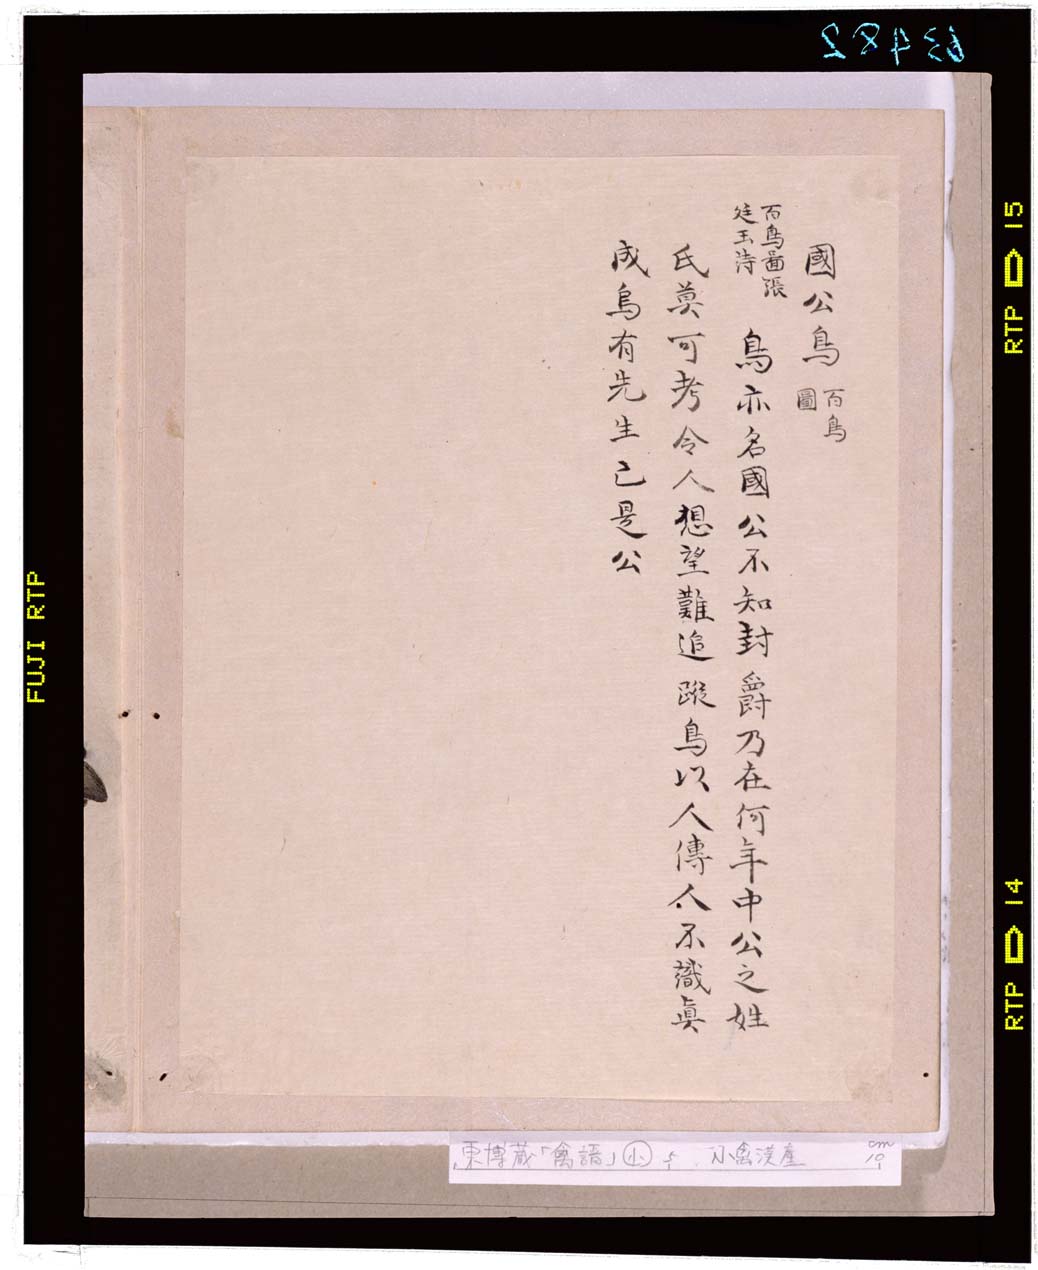 63482
國公鳥 百鳥
圖
百鳥啚張
廷玉詩
鳥亦名國公不知封爵乃在何年中公之姓
氏莫可考令人想望難追蹤鳥以人傳人不識眞
成烏有先生已是公
東博蔵「禽譜」小
小禽漢産
cm
10
FUJI RTP
RTP 15
RTP 14